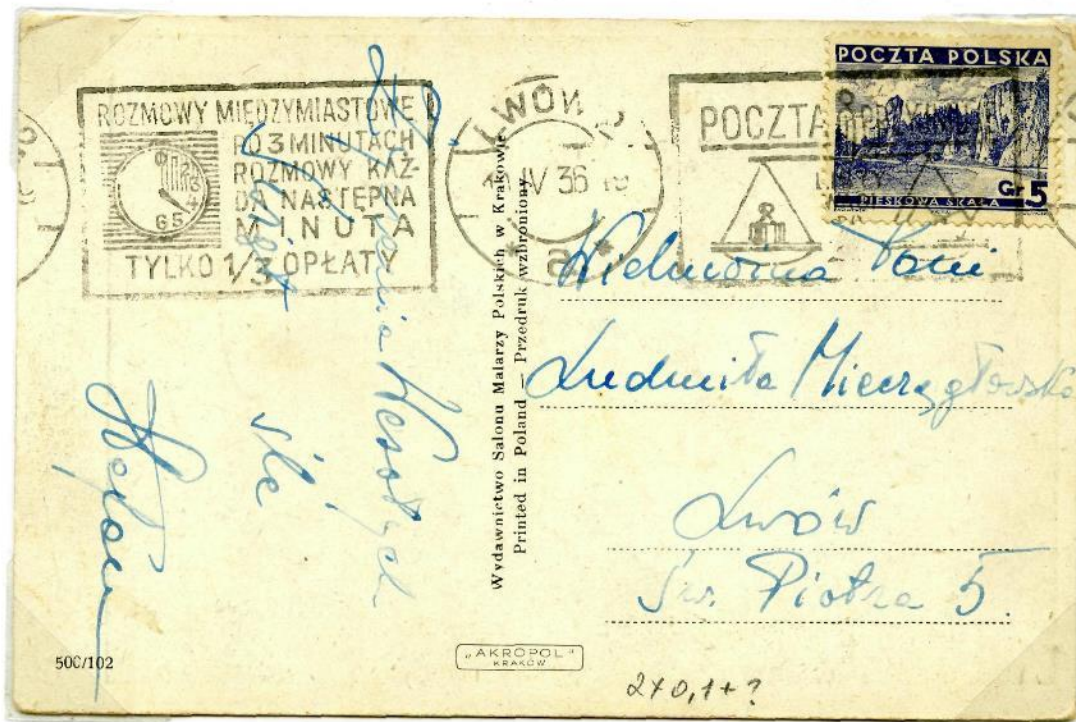 ROZMOWY MIĘDZYMIASTOWE
PO 3 MINUTACH
ROZMOWY KAŻ-
DA NASTĘPNA
MINUTA
TYLKO 1/3 OPŁATY
LWÓW 2
IV 36
POCZTA
POCZTA POLSKA
Gr. 5
PIESKOWA SKAŁA
Wesołych
Świąt
śle
Wydawnictwo Salonu Malarzy Polskich w Krakowie
Printed in Poland — Przedruk wzbroniony
Wielmożna Pani
Ludmiła
Lwów
Św. Piotra 5.
500/102
"AKROPOL"
KRAKÓW
2x0,1+?